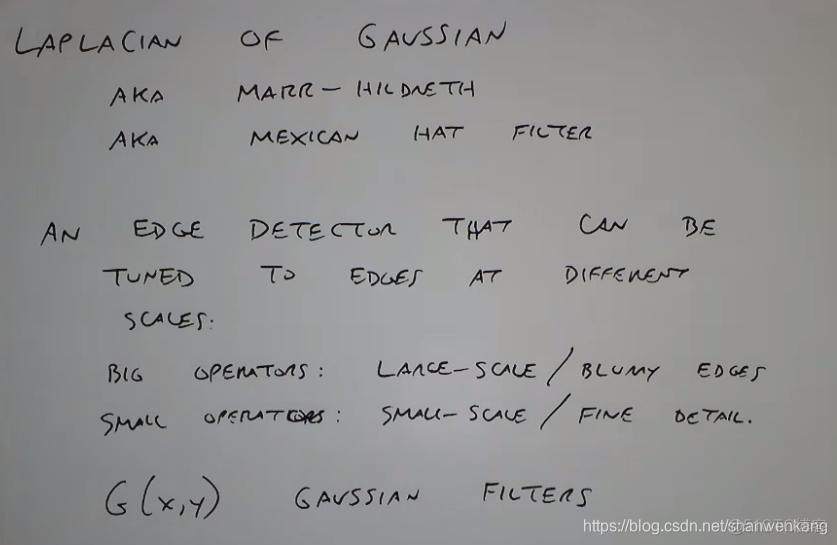 LAPLACIAN OF GAUSSIAN
AKA MARR-HILDRETH
AKA MEXICAN HAT FILTER
AN EDGE DETECTOR THAT CAN BE
TUNED TO EDGES AT DIFFERENT
SCALES:
BIG OPERATORS: LARGE-SCALE / BLURRY EDGES
SMALL OPERATORS: SMALL-SCALE / FINE DETAIL.
G(x,y) GAUSSIAN FILTERS
https://blog.csdn.net/shanwenkang
@51CTO博客